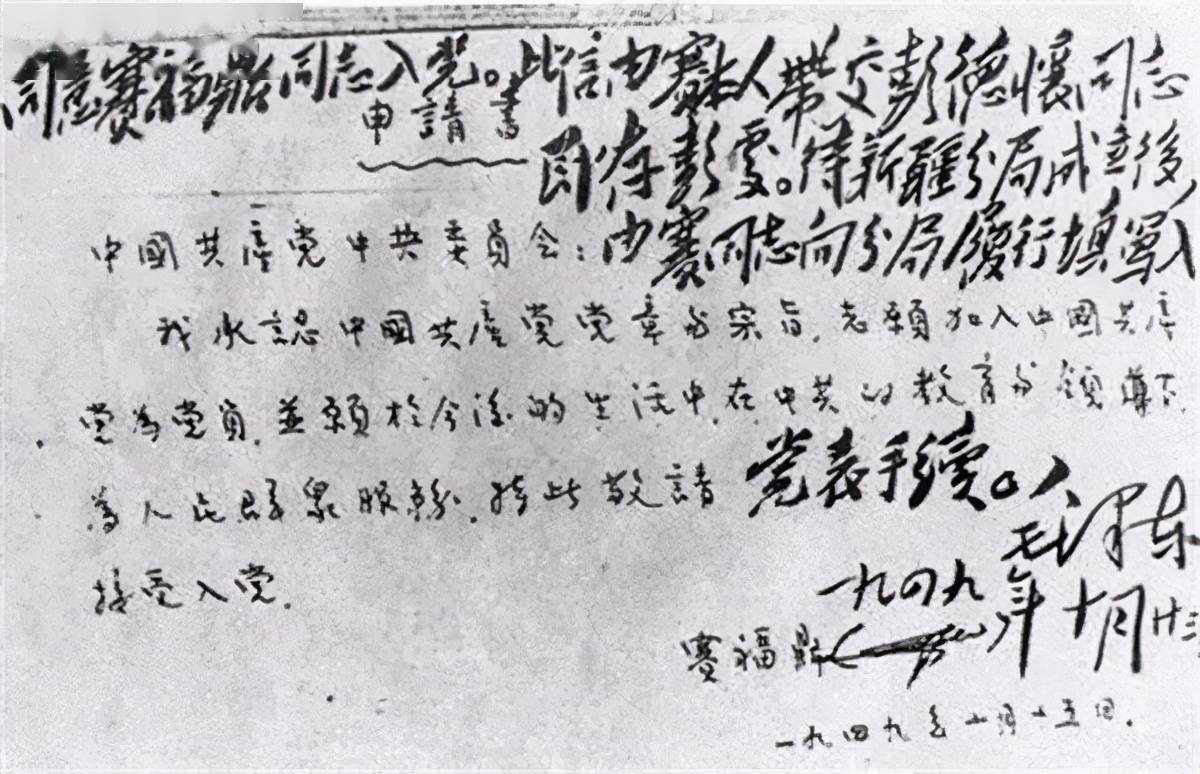 同意賽福鼎同志入党。此信由賽本人帶交彭德懷同志
即存彭處。待新疆分局成立後,
由賽同志向分局履行填写入
党表手续。
毛泽东
一九四九年十月廿三
申請書
中國共產党中共委員会:
我承認中國共產党党章与宗旨,志願加入中國共產
党为党員,並願於今後的生活中,在中共的教育与領導下,
為人民群眾服務,特此敬請
接受入党.
賽福鼎
一九四九年十月十五日.